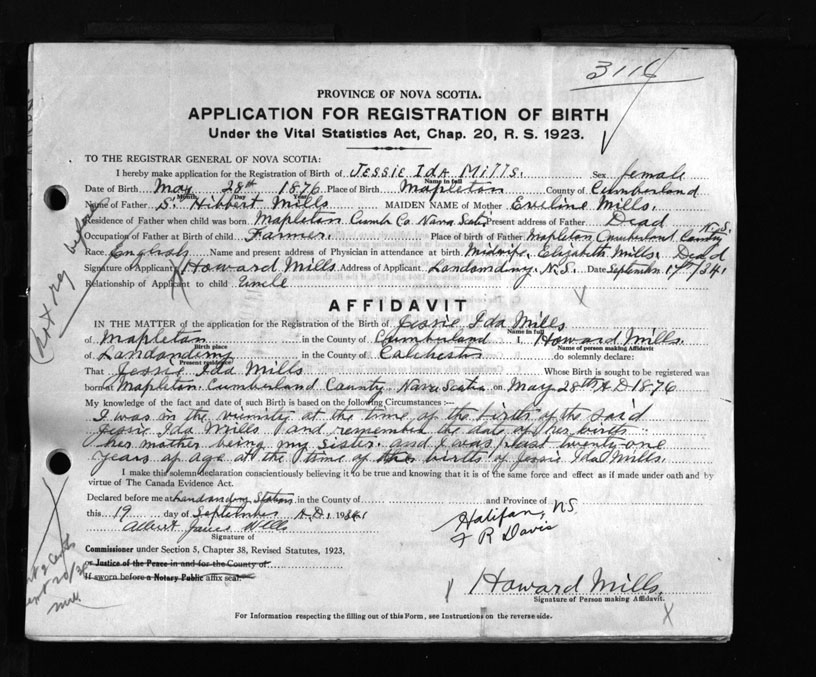 3116
PROVINCE OF NOVA SCOTIA.
APPLICATION FOR REGISTRATION OF BIRTH
Under the Vital Statistics Act, Chap. 20, R. S. 1923.
TO THE REGISTRAR GENERAL OF NOVA SCOTIA:
I hereby make application for the Registration of Birth of Jessie Ida Mills. Sex female
Name in full
Date of Birth May 28th 1876 Place of Birth Mapleton County of Cumberland
Month Day Year
Name of Father S. Hibbert Mills MAIDEN NAME of Mother Eveline Mills.
Residence of Father when child was born Mapleton Cumb Co Nova Scotia Present address of Father Dead
Occupation of Father at Birth of child Farmer. Place of birth of Father Mapleton Cumberland County N.S.
Race English Name and present address of Physician in attendance at birth Midwife, Elizabeth Mills. Dead
Signature of Applicant Howard Mills Address of Applicant Date September
Relationship of Applicant to child Uncle
AFFIDAVIT
IN THE MATTER of the application for the Registration of the Birth of Jessie Ida Mills
Name in full
of Mapleton in the County of Cumberland I, Howard Mills.
Birth place Name of person making Affidavit
of in the County of do solemnly declare:
Present residence
That Jessie Ida Mills Whose Birth is sought to be registered was
born at Mapleton Cumberland County Nova Scotia on May 28th A D 1876
My knowledge of the fact and date of such Birth is based on the following Circumstances :—
I was in the vicinity at the time of the birth of the said
Jessie Ida Mills and remember the date of her birth
her mother being my sister. and I was past twenty-one
years of age at the time of the birth of Jessie Ida Mills.
I make this solemn declaration conscientiously believing it to be true and knowing that it is of the same force and effect as if made under oath and by
virtue of The Canada Evidence Act.
Declared before me at Station in the County of and Province of
this 19 day of September A.D. 19
Halifax, NS
F R Davis
Albert James Wells
Signature of
Commissioner under Section 5, Chapter 38, Revised Statutes, 1923,
or Justice of the Peace in and for the County of
If sworn before a Notary Public affix seal.
Howard Mills.
Signature of Person making Affidavit.
For Information respecting the filling out of this Form, see Instructions on the reverse side.